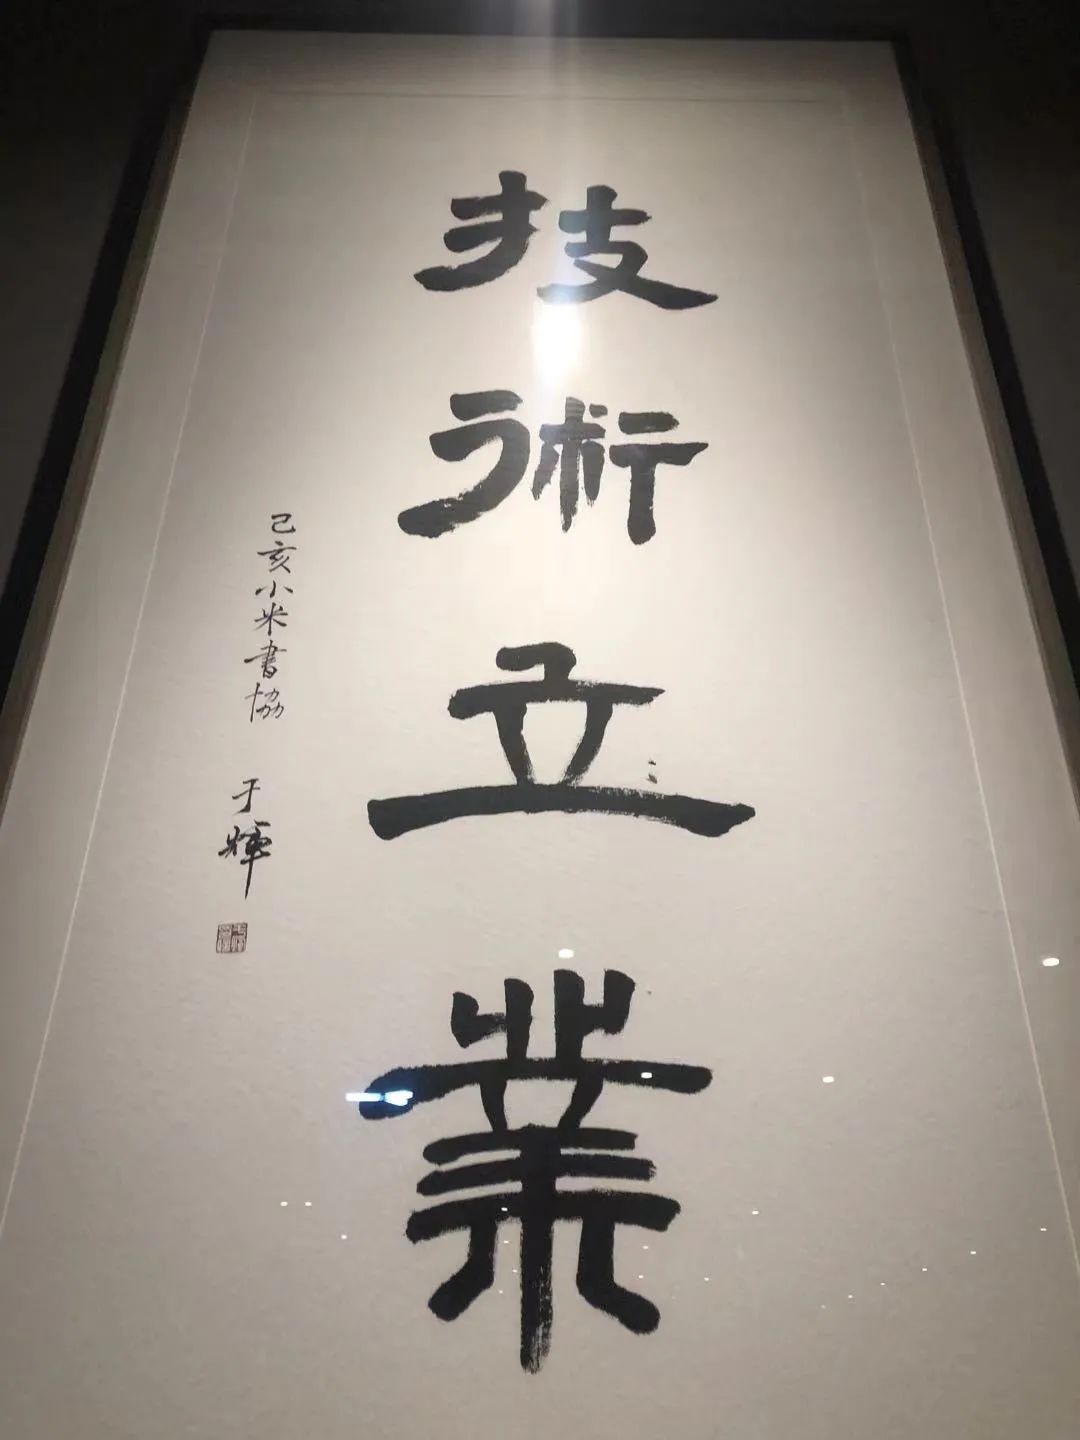 技術立業
己亥小米書協
于輝